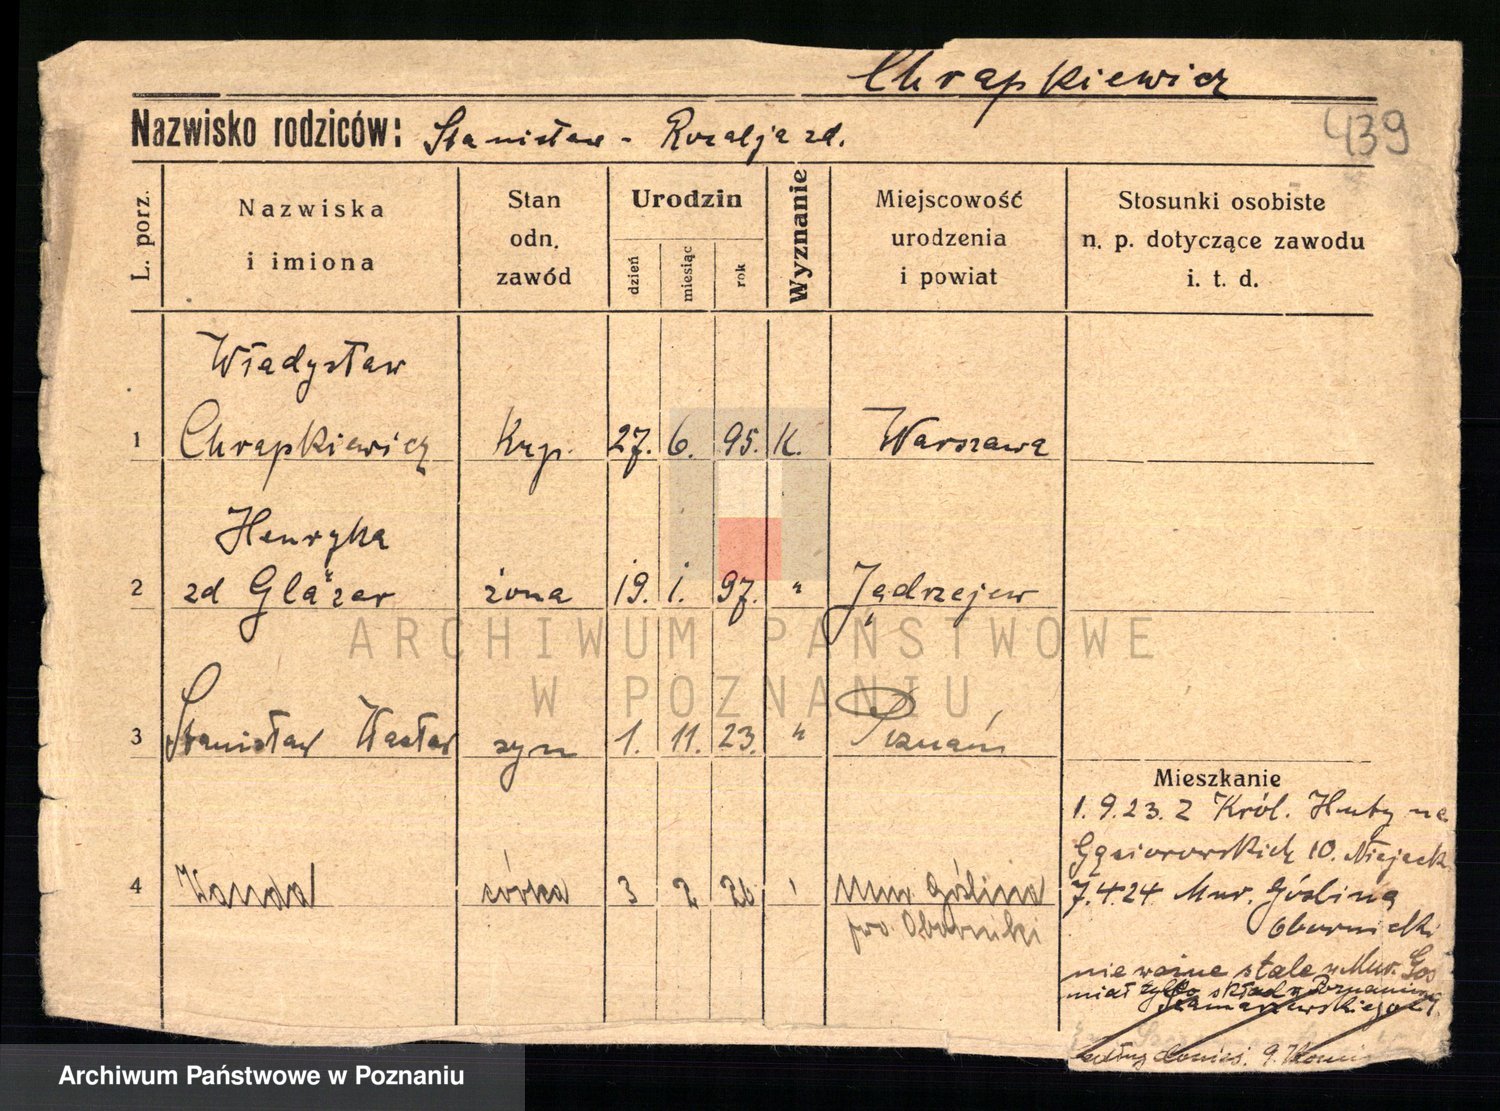 Chrapkiewicz
439
Nazwisko rodziców: Stanisław - Rozalja zd.
L. porz.
Nazwiska
i imiona
Stan
odn.
zawód
Urodzin
dzień
miesiąc
rok
Wyznanie
Miejscowość
urodzenia
i powiat
Stosunki osobiste
n. p. dotyczące zawodu
i. t. d.
Władysław
1 Chrapkiewicz Kup. 27. 6. 95. K. Warszawa
Henryka
2 zd Gläzer żona 19. 1. 97. " Jędrzejew
3 Stanisław Wacław syn 1. 11. 23. " Poznań
4 Wanda córka 3 2 26 Mur Goślina
pow. Oborniki
Mieszkanie
1.9.23. Z Król. Huty na
Gąsiorowskich 10.
7.4.24 Mur. Goślina
obornicki
nie ważne stale w Mur. Goś
miał tylko skład w Poznaniu
Szamarzewskiego
ARCHIWUM PAŃSTWOWE
W POZNANIU
Archiwum Państwowe w Poznaniu